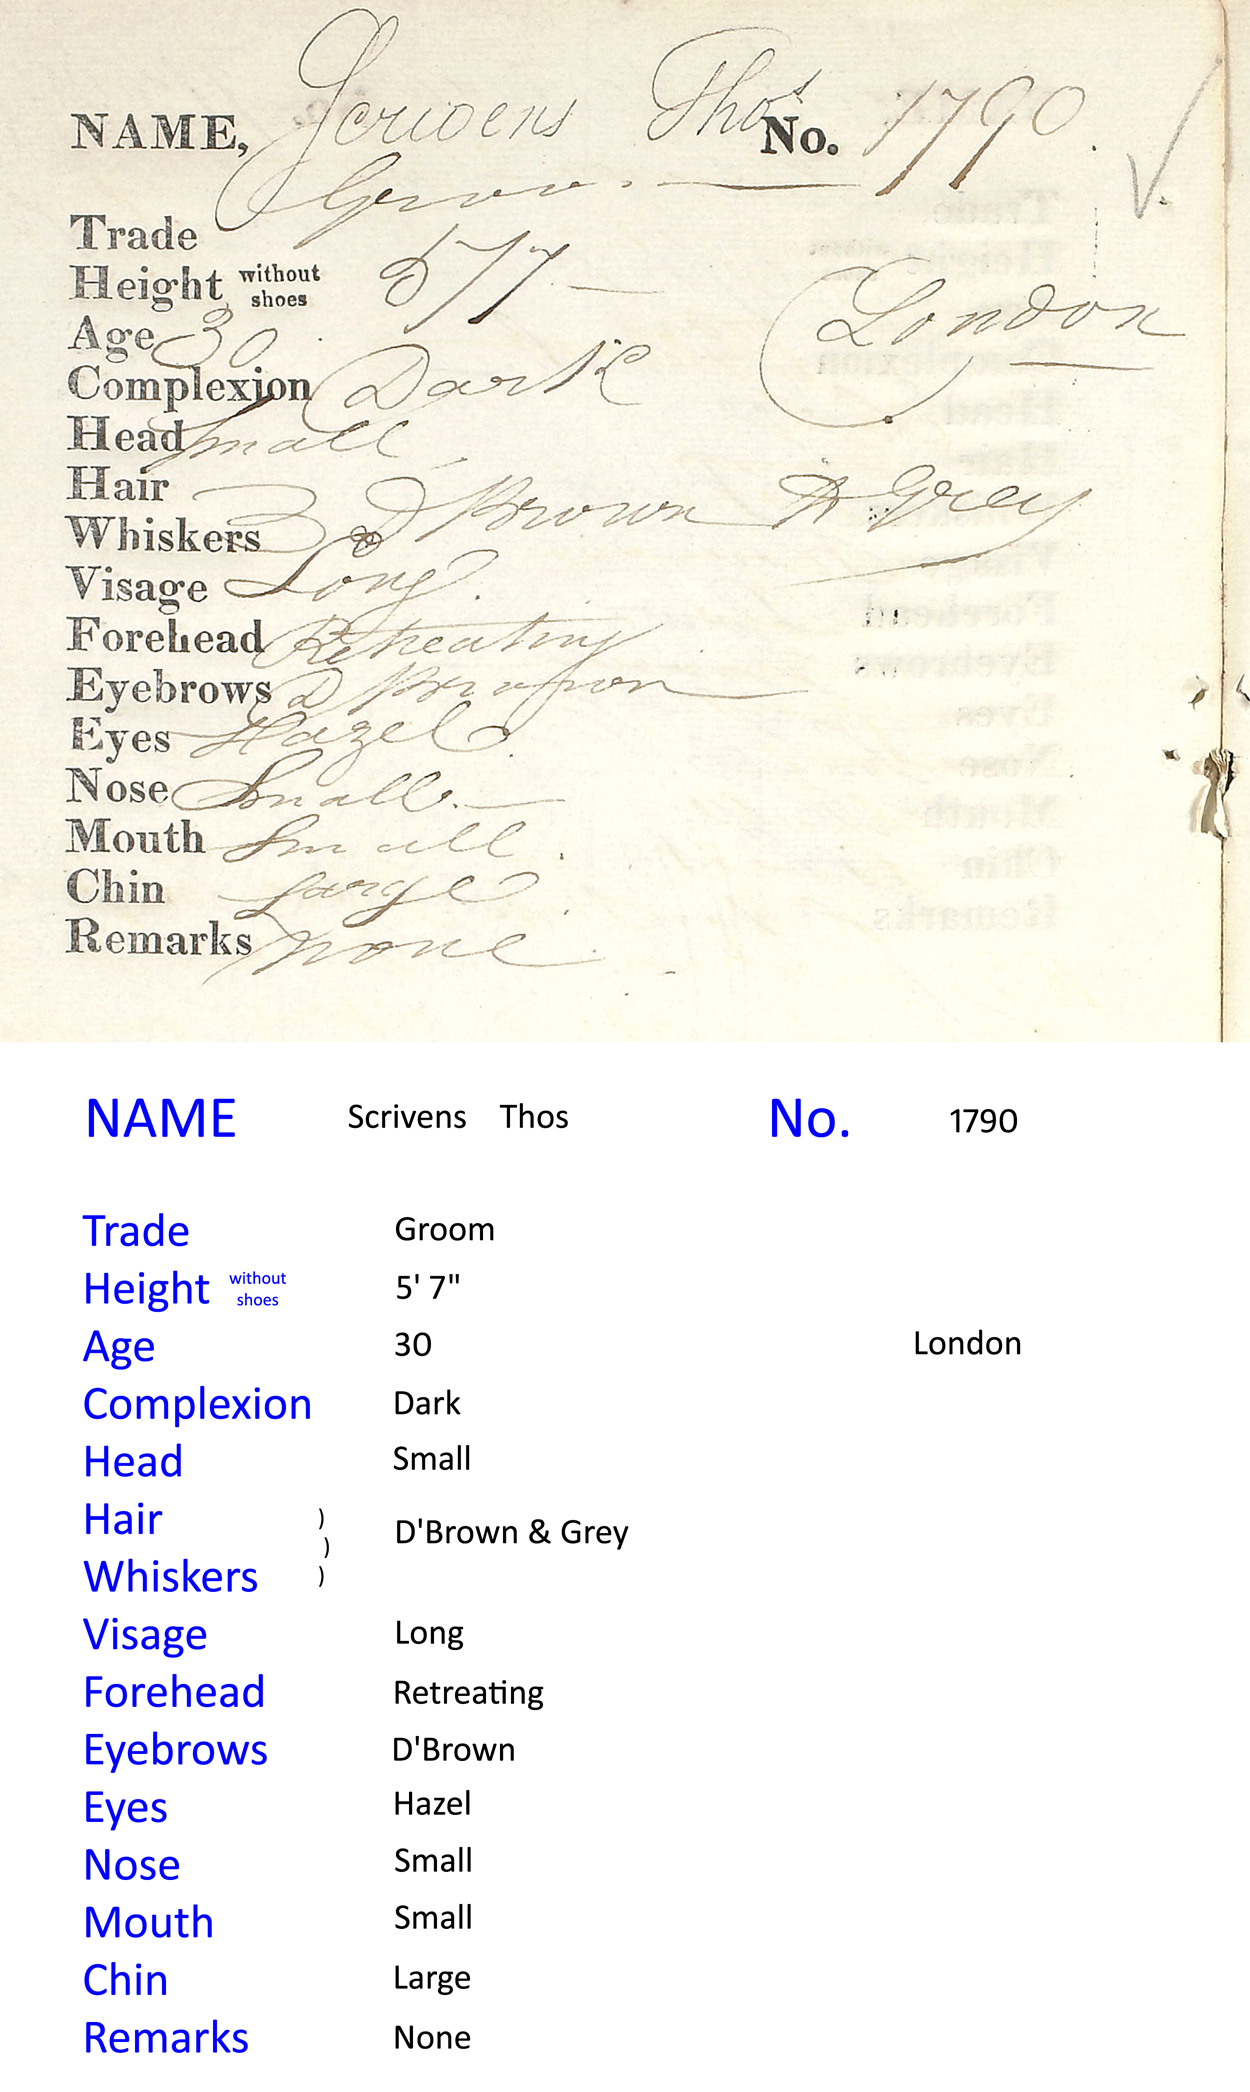 NAME, Scrivens Thos No. 1790.
Trade Groom
Height without shoes 5/7
London
Age 30
Complexion Dark
Head Small
Hair
Whiskers
D Brown & Grey
Visage Long
Forehead Retreating
Eyebrows D Brown
Eyes Hazel
Nose Small
Mouth Small
Chin Large
Remarks None
NAME Scrivens Thos No. 1790
Trade Groom
Height without shoes 5' 7"
Age 30 London
Complexion Dark
Head Small
Hair )
) D'Brown & Grey
Whiskers )
Visage Long
Forehead Retreating
Eyebrows D'Brown
Eyes Hazel
Nose Small
Mouth Small
Chin Large
Remarks None